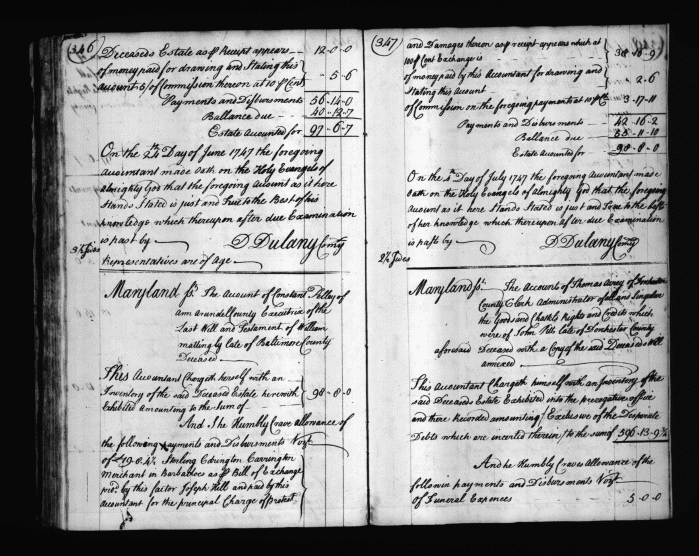 346
Deceaseds Estate as ⅌ Receipt appears — 12-0-0
of money paid for drawing and Stating this
Account 5/ of Commission thereon at 10 ⅌ Cent — 5-6
Payments and Disbursments 56-14-0
Ballance due — 40-12-7
Estate Accounted for 97-6-7
On the 24th Day of June 1747 the foregoing
Accountant made Oath on the Holy Evangels of
Almighty God that the foregoing Account as it here
Stands Stated is just and True to the Best of his
knowledge which thereupon after due Examination
is past by — D Dulany Comry
3½ Sides
Representatives are of Age —
Maryland ss. The Account of Constant Polley of
ann Arundell County Executrix of the
Last Will and Testament of William
late of Baltimore County
Deceased —
This Accountant Chargeth herself with an
Inventory of the said Deceaseds Estate herewith
Exhibited amounting to the Sum of 98-8-0
And She Humbly Crave allowance of
the following payments and Disbursments Vizt
of Sterling Carrington
Merchant in Barbadoes as ⅌ Bill of Exchange
by this factor Joseph Hill and paid by this
accountant for the principal Charge of Protest
347
and Damages thereon as ⅌ receipt appears which at
100 ⅌ Cent Exchange is 38-18-9
of money paid by this Accountant for drawing and
Stating this Account 2.6
of Commission on the foregoing payments at 10 ⅌ Ct 3-17-11
Payments and Disbursments 42-16-2
Ballance due — 55-11-10
Estate Accounted for 98-8-0
On the Day of July 1747 the foregoing Accountant made
Oath on the Holy Evangels of Almighty God that the foregoing
Account as it here Stands Stated is just and True to the best
of her knowledge which thereupon after due Examination
is past by — D Dulany Comry
2½ Sides
Maryland ss. The Account of Thomas of Dorchester
County Clerk Administrator of all and Singular
the Goods and Chattels Rights and Credits which
were of John Pitt late of Dorchester County
aforesaid Deceased with a Copy of the said Deceaseds Will
annexed —
This Accountant Chargeth himself with an Inventory of the
said Deceaseds Estate Exhibited into the prerogative office
and there Recorded amounting / Exclusive of the Desperate
Debts which are inserted therein / to the sum of 596-13-9¾
And he Humbly Craves Allowance of the
following payments and Disbursments Vizt
Of Funeral Expences — 5-0-0